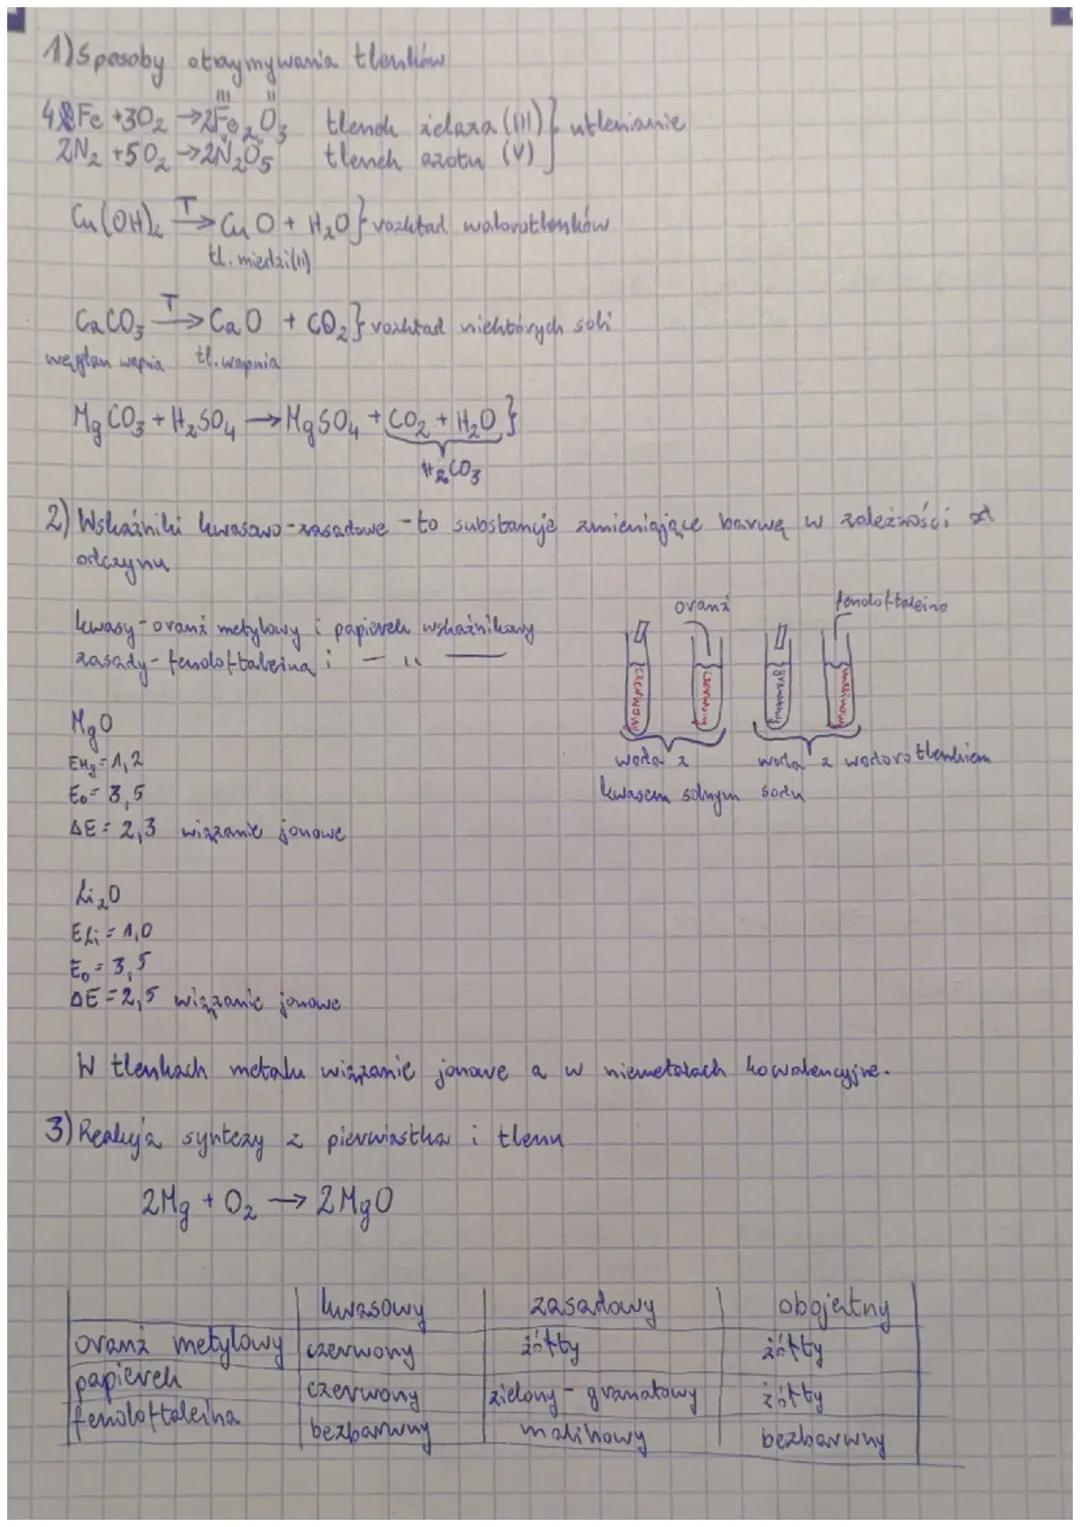 1) Sposoby otrzymywania tlenków
III II
4Fe + 3O₂ → 2Fe₂O₃ tlenek żelaza (III) } utlenianie
2N₂ + 5O₂ → 2N₂O₅ tlenek azotu (V)
Cu(OH)₂ T→ CuO + H₂O } rozkład wodorotlenków
tl. miedzi(II)
CaCO₃ T→ CaO + CO₂ } rozkład niektórych soli
węglan wapnia tl. wapnia
MgCO₃ + H₂SO₄ → MgSO₄ + CO₂ + H₂O }
H₂CO₃
2) Wskaźniki kwasowo-zasadowe - to substancje zmieniające barwę w zależności od
odczynu
kwasy - oranż metylowy i papierek wskaźnikowy
zasady - fenoloftaleina i — 11 —
oranż fenoloftaleina
czerwony czerwony granatowy malinowy
woda z woda z wodorotlenkiem
kwasem solnym sodu
MgO
EMg = 1,2
Eo = 3,5
ΔE = 2,3 wiązanie jonowe
Li₂O
ELi = 1,0
Eo = 3,5
ΔE = 2,5 wiązanie jonowe
W tlenkach metalu wiązanie jonowe a w niemetalach kowalencyjne.
3) Reakcja syntezy z pierwiastka i tlenu
2Mg + O₂ → 2MgO
kwasowy zasadowy obojętny
oranż metylowy czerwony żółty żółty
papierek czerwony zielony - granatowy żółty
fenoloftaleina bezbarwny malinowy bezbarwny